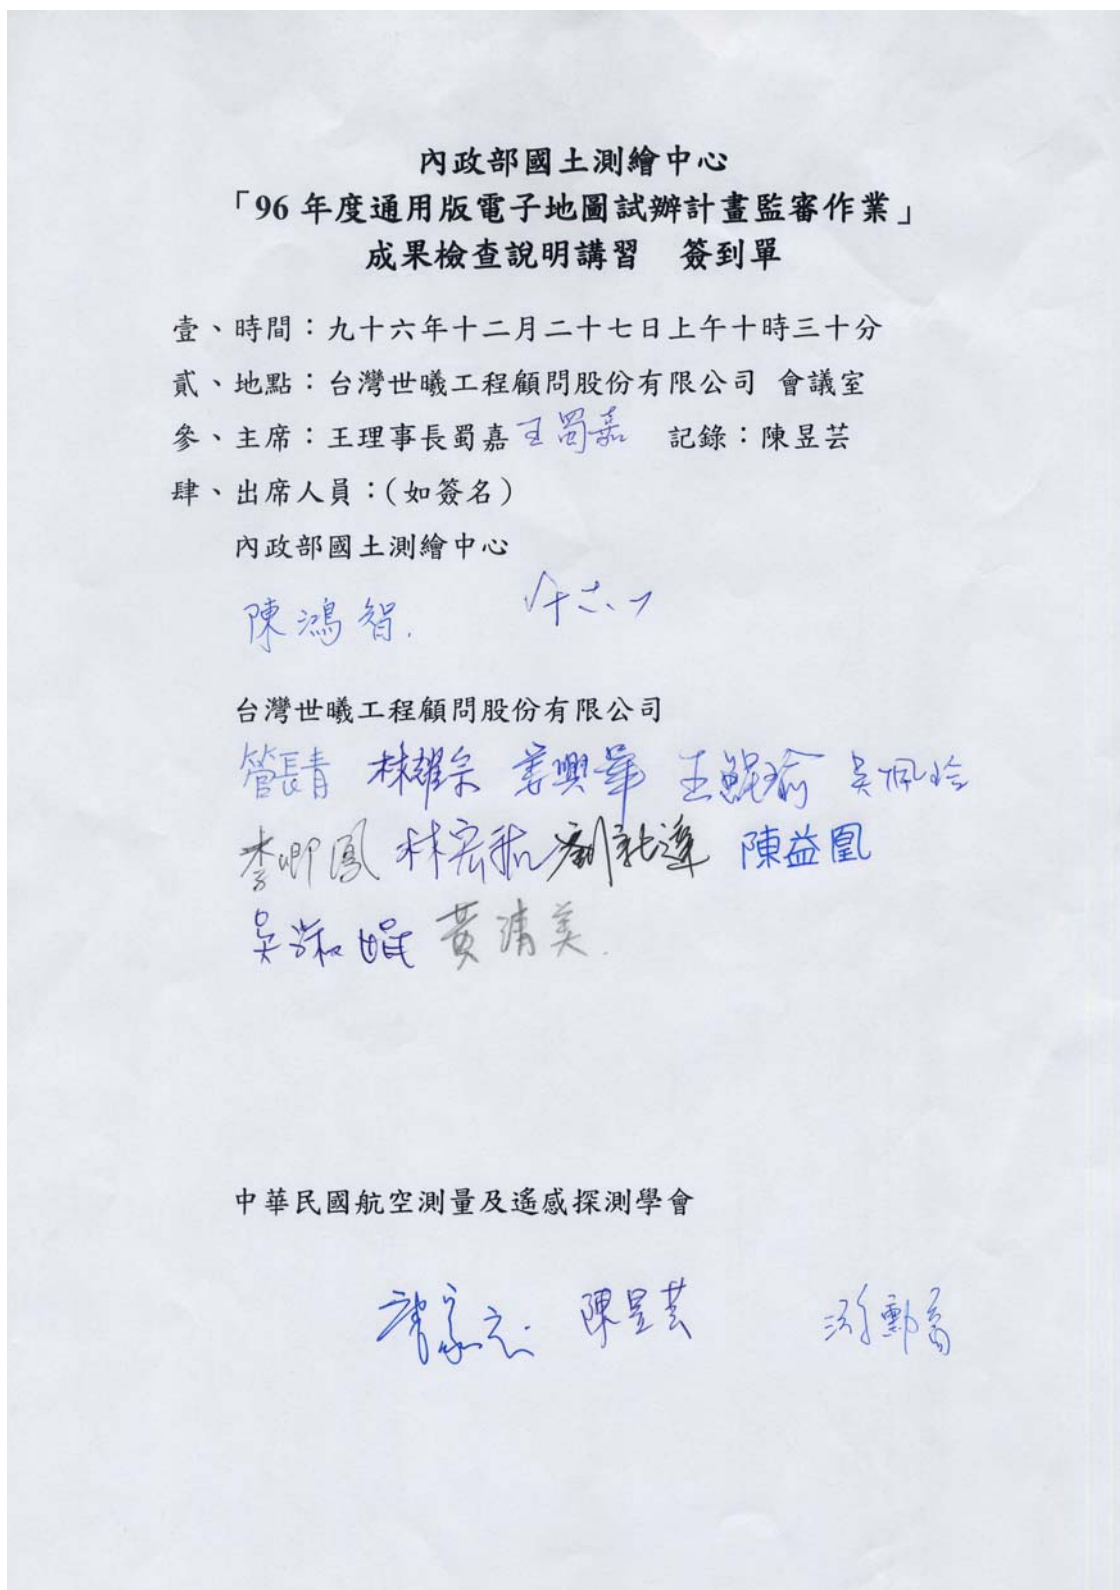 內政部國土測繪中心
「96 年度通用版電子地圖試辦計畫監審作業」
成果檢查說明講習　簽到單
壹、時間：九十六年十二月二十七日上午十時三十分
貳、地點：台灣世曦工程顧問股份有限公司 會議室
參、主席：王理事長蜀嘉 王蜀嘉 記錄：陳昱芸
肆、出席人員：(如簽名)
內政部國土測繪中心
陳鴻智.
台灣世曦工程顧問股份有限公司
管長青 林耀宗 王鯤瑜 吳佩玲
李卿鳳 林宏 陳益凰
吳淑 黃清美.
中華民國航空測量及遙感探測學會
陳昱芸